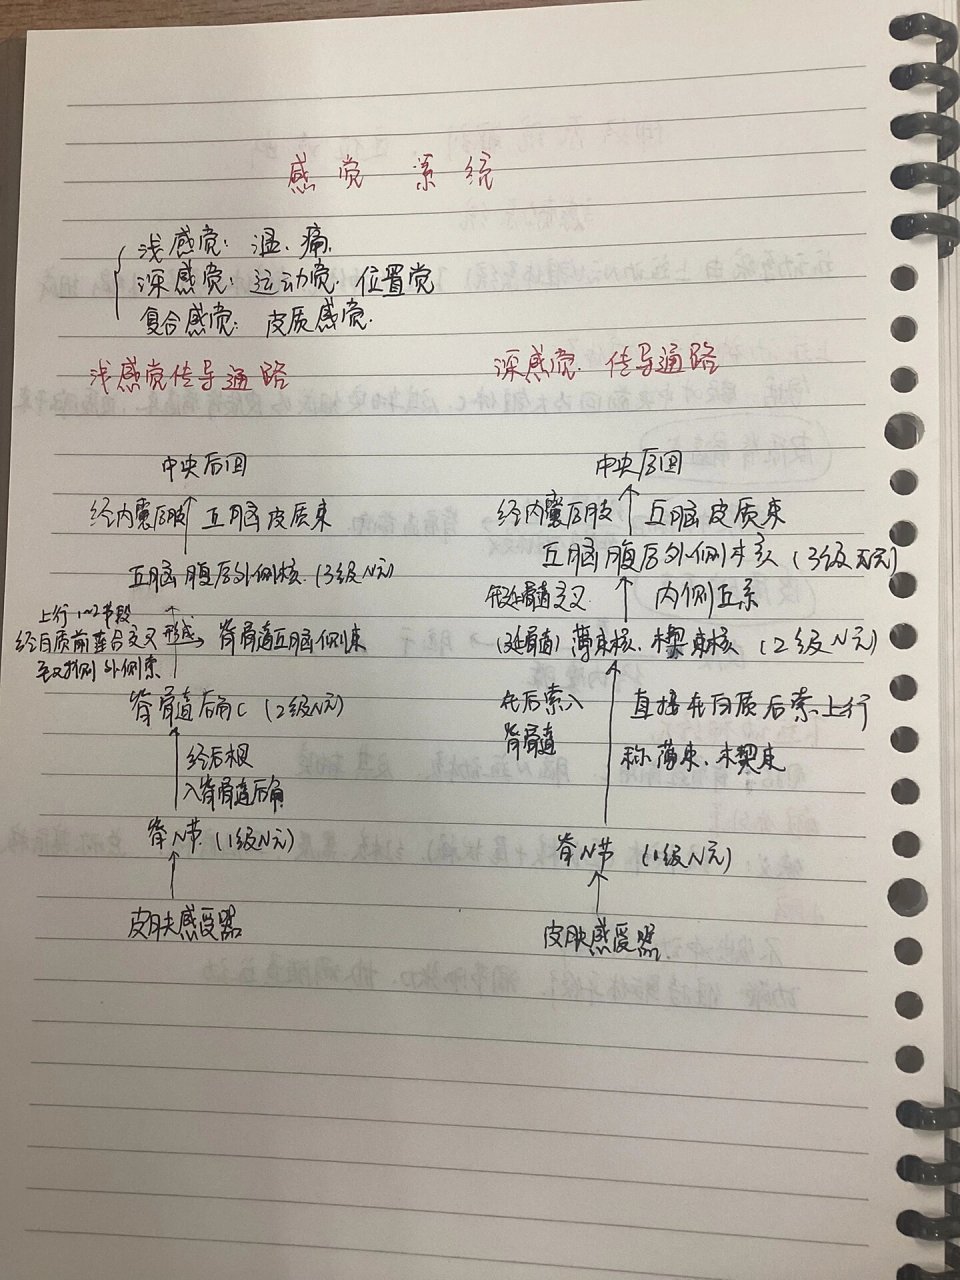 感觉 系统
浅感觉：温、痛.
深感觉：运动觉. 位置觉
复合感觉：皮质感觉.
浅感觉传导通路
中央后回
经内囊后肢 丘脑皮质束
丘脑腹后外侧核.（3级N元）
上行1~2节段
经白质前连合交叉 形成 脊髓丘脑侧束
至对侧外侧索
脊髓后角C（2级N元）
经后根
入脊髓后角
脊N节.（1级N元）
皮肤感受器
深感觉. 传导通路
中央后回
经内囊后肢 丘脑皮质束
丘脑腹后外侧核（3级N元）
在延髓交叉 内侧丘系
（延髓）薄束核、楔束核（2级N元）
在后索入 直接在白质后索上行
脊髓
称薄束、楔束
脊N节（1级N元）
皮肤感受器